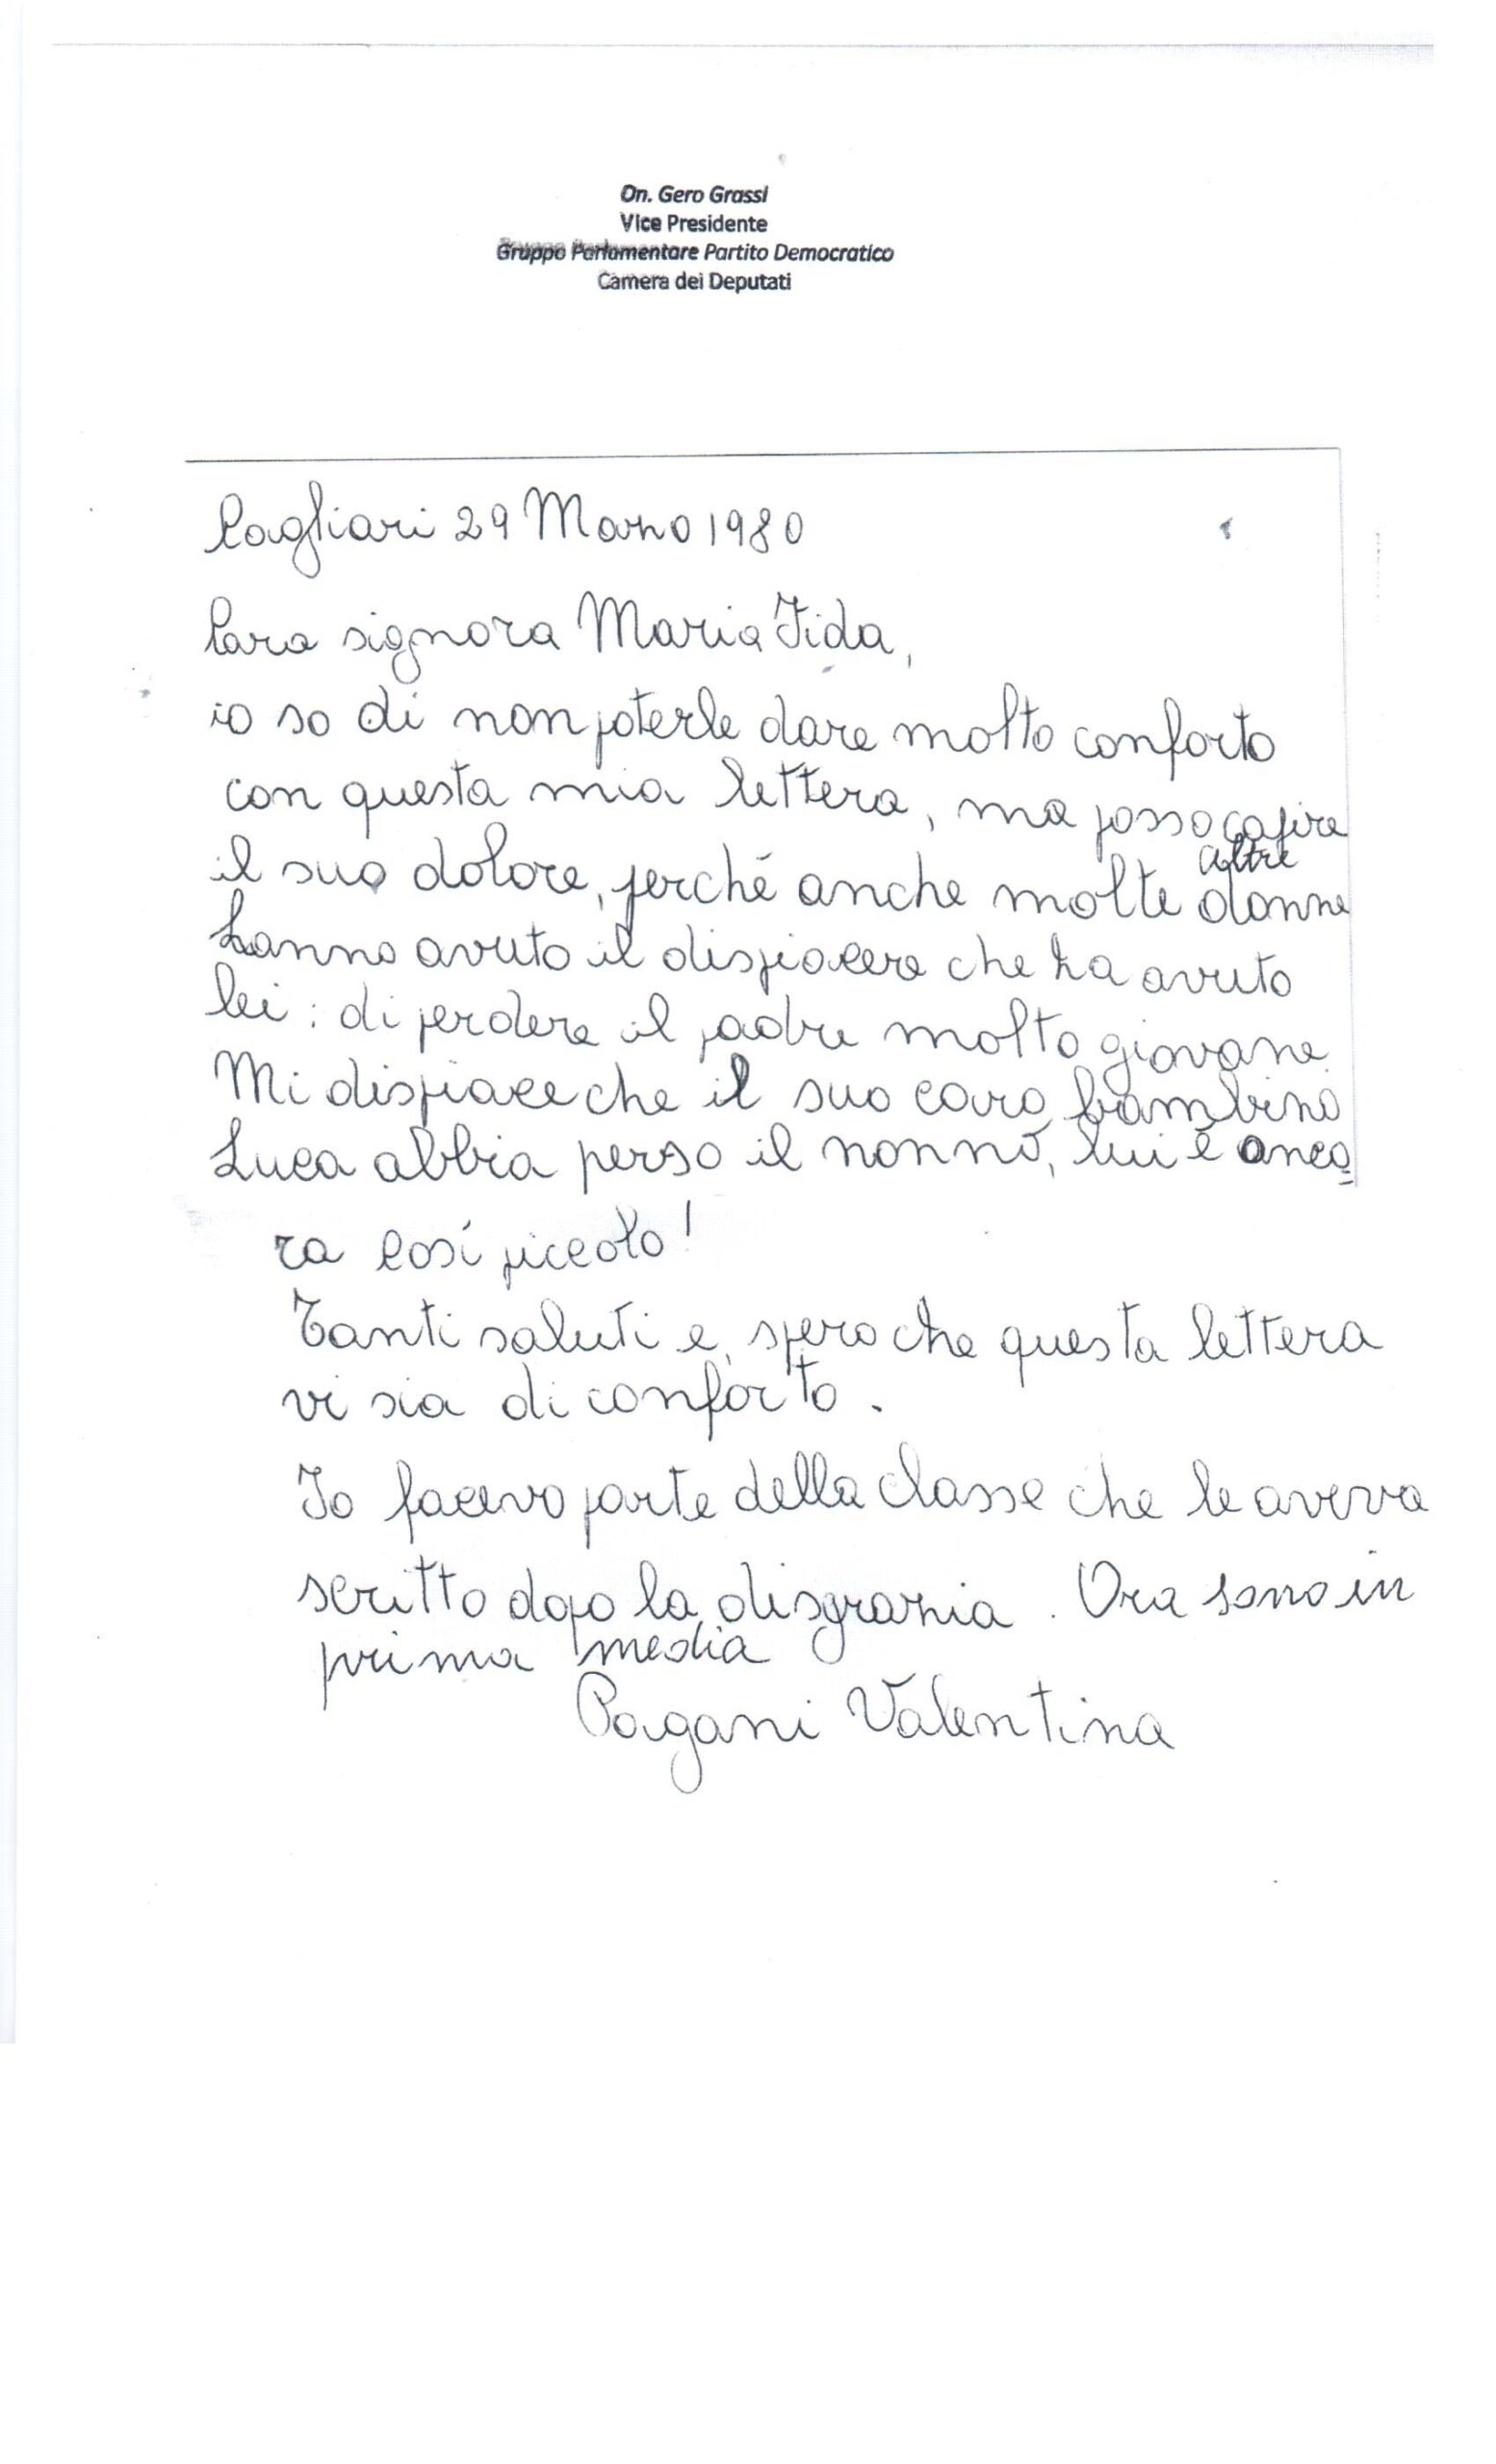 On. Gero Grassi
Vice Presidente
Gruppo Parlamentare Partito Democratico
Camera dei Deputati
Cagliari 29 Marzo 1980
Cara signora Maria Fida,
io so di non poterle dare molto conforto
con questa mia lettera, ma posso capire
il suo dolore, perché anche molte altre donne
hanno avuto il dispiacere che ha avuto
lei: di perdere il padre molto giovane.
Mi dispiace che il suo caro bambino
Luca abbia perso il nonno, lui è anco
ra così piccolo!
Tanti saluti e, spero che questa lettera
vi sia di conforto.
Io facevo parte della classe che le aveva
scritto dopo la disgrazia. Ora sono in
prima media
Pagani Valentina